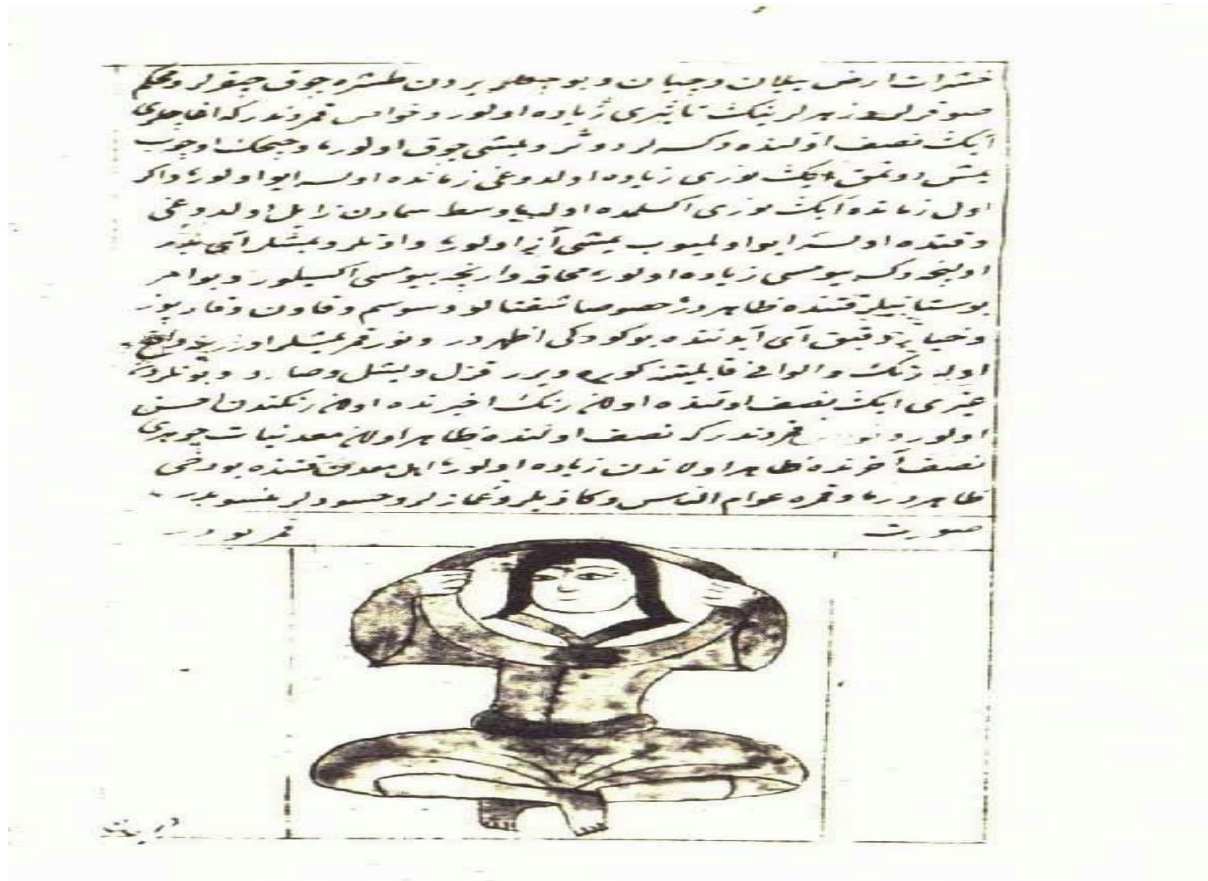 حشرات ارض ییلان و چیان و بوجکلر یردن طشره چوق چیقرلر و محکم
صوقرلر و زهرلرینک تاثیری زیاده اولور و خواص قمردندرکه اغاجلری
آیک نصف اولنده دکسه لر دوتر و یمشی چوق اولور و چیچک اوچوب
یمش دوتمق آیک نوری زیاده اولدوغی زمانده اولسه ایو اولور و اکر
اول زمانده آیک نوری اکسلمده اولیا وسط سمادن زایل اولدوغی
وقتده اولسه ایو اولمیوب یمشی آز اولور و اوتلر و یمشلر آی بدر
اولنجه دک بیومسی زیاده اولور محاقه وارنجه بیومسی اکسیلور و بو امر
بوستانجیلر قتنده ظاهردر خصوصا شفتالو و سوسم و قاون و قارپوز
و خیار آی آیدننده بیودکی اظهردر و نور قمر یمشلر اوزرینه واقع
اولسه رنک و الوانی قابلیتنه کوره ویرر قزل و یشل و صارو و بونلردن
خیری آیک نصف اولنده اولان رنک اخیرنده اولان رنکندن احسن
اولور و قمردندرکه نصف اولنده ظاهر اولان معدنیات جوهری
نصف آخرنده ظاهر اولاندن زیاده اولور اهل معدن قتنده بو دخی
ظاهردر و قمره عوام الناس و کاذبلر و غمازلر و حسودلر منسوبدر
صورت قمر بودر